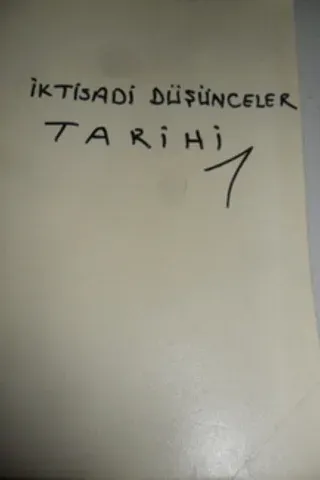 İKTİSADİ DÜŞÜNCELER
TARİHİ
1